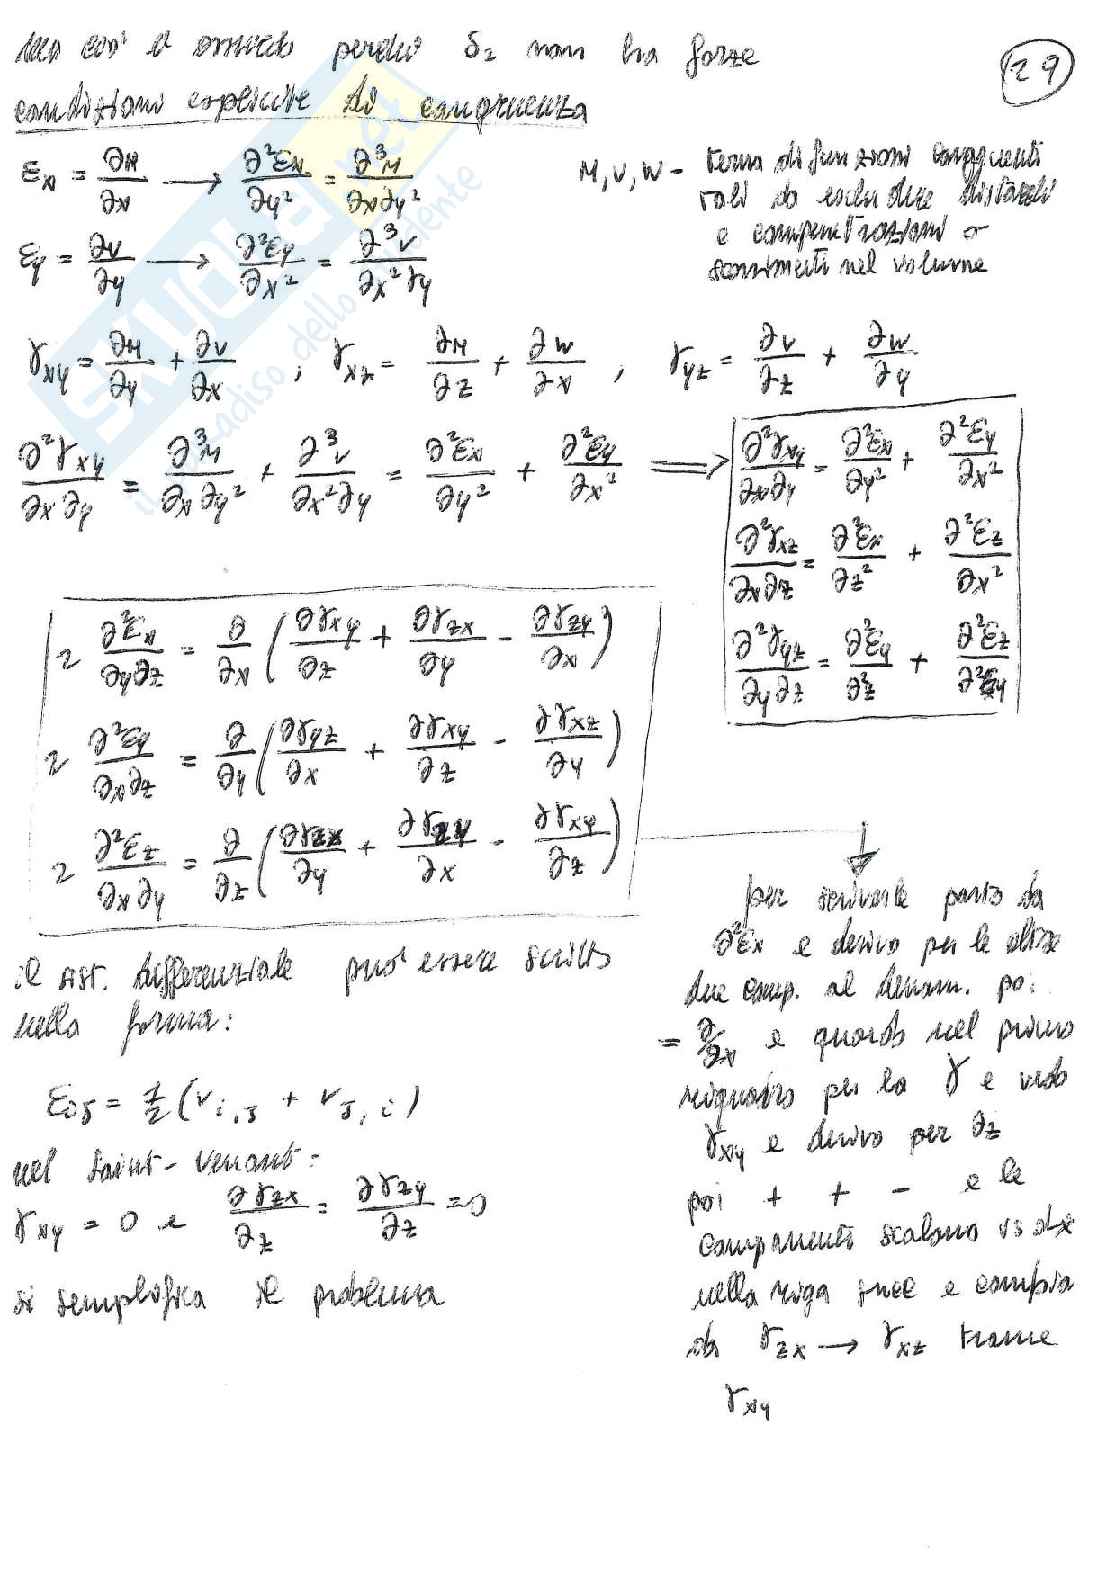 perché S₂ non ha forze
29
condizioni esplicite di congruenza
εx = ∂u/∂x → ∂²εx/∂y² = ∂³u/∂x∂y²
u, v, w - terna di funzioni congruenti
tali da escludere distacchi
e compenetrazioni o
scorrimenti nel volume
εy = ∂v/∂y → ∂²εy/∂x² = ∂³v/∂x²∂y
γxy = ∂u/∂y + ∂v/∂x ; γxz = ∂u/∂z + ∂w/∂x ; γyz = ∂v/∂z + ∂w/∂y
∂²γxy/∂x∂y = ∂³u/∂x∂y² + ∂³v/∂x²∂y = ∂²εx/∂y² + ∂²εy/∂x² ⟹
∂²γxy/∂x∂y = ∂²εx/∂y² + ∂²εy/∂x²
∂²γxz/∂x∂z = ∂²εx/∂z² + ∂²εz/∂x²
∂²γyz/∂y∂z = ∂²εy/∂²z + ∂²εz/∂²y
2 ∂²εx/∂y∂z = ∂/∂x (∂γxy/∂z + ∂γzx/∂y - ∂γzy/∂x)
2 ∂²εy/∂x∂z = ∂/∂y (∂γyz/∂x + ∂γxy/∂z - ∂γxz/∂y)
2 ∂²εz/∂x∂y = ∂/∂z (∂γzx/∂y + ∂γzy/∂x - ∂γxy/∂z)
per scriverle parto da
∂²εx e derivo per le altre
due comp. al denom. poi
= ∂/∂x e guardo nel primo
riquadro per la γ e vedo
γxy e derivo per ∂z
poi + + - e le
componenti scalano vs dx
nella riga succ e cambia
da γzx → γxz tranne
γxy
il sist. differenziale può essere scritto
nella forma:
εij = ½ (vi,j + vj,i)
nel Saint-Venant:
γxy = 0 e ∂γzx/∂z = ∂γzy/∂z = 0
si semplifica il problema
SKUOLA.net
il paradiso dello studente